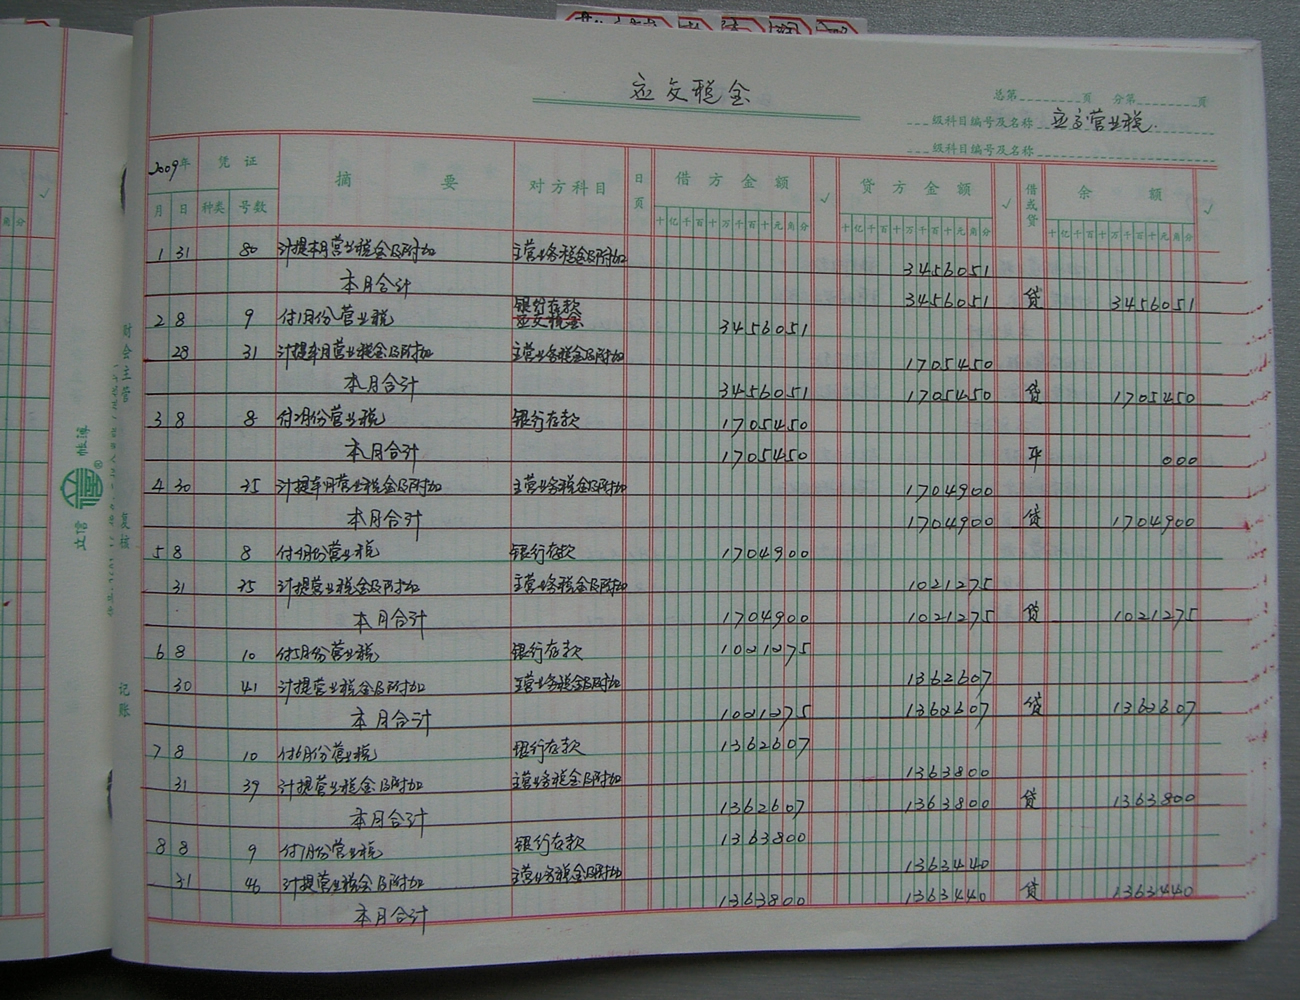 应交税金
总第 页 分第 页
级科目编号及名称 应交营业税
级科目编号及名称
2009年 凭证 摘要 对方科目 日页 借方金额 √ 贷方金额 √ 借或贷 余额 √
月 日 种类 号数 十亿千百十万千百十元角分 十亿千百十万千百十元角分 十亿千百十万千百十元角分
1 31 80 计提本月营业税金及附加 主营业务税金及附加 3456051
本月合计 3456051 贷 3456051
2 8 9 付1月份营业税 银行存款 应交税金 3456051
28 31 计提本月营业税金及附加 主营业务税金及附加 1705450
本月合计 3456051 1705450 贷 1705450
3 8 8 付2月份营业税 银行存款 1705450
本月合计 1705450 平 000
4 30 35 计提本月营业税金及附加 主营业务税金及附加 1704900
本月合计 1704900 贷 1704900
5 8 8 付4月份营业税 银行存款 1704900
31 35 计提营业税金及附加 主营业务税金及附加 1021275
本月合计 1704900 1021275 贷 1021275
6 8 10 付5月份营业税 银行存款 1021275
30 41 计提营业税金及附加 主营业务税金及附加 1362607
本月合计 1021275 1362607 贷 1362607
7 8 10 付6月份营业税 银行存款 1362607
31 39 计提营业税金及附加 主营业务税金及附加 1363800
本月合计 1362607 1363800 贷 1363800
8 8 9 付7月份营业税 银行存款 1363800
31 46 计提营业税金及附加 主营业务税金及附加 1363440
本月合计 1363800 1363440 贷 1363440
财会主管
复核
记账
立信
帐簿
角分
√